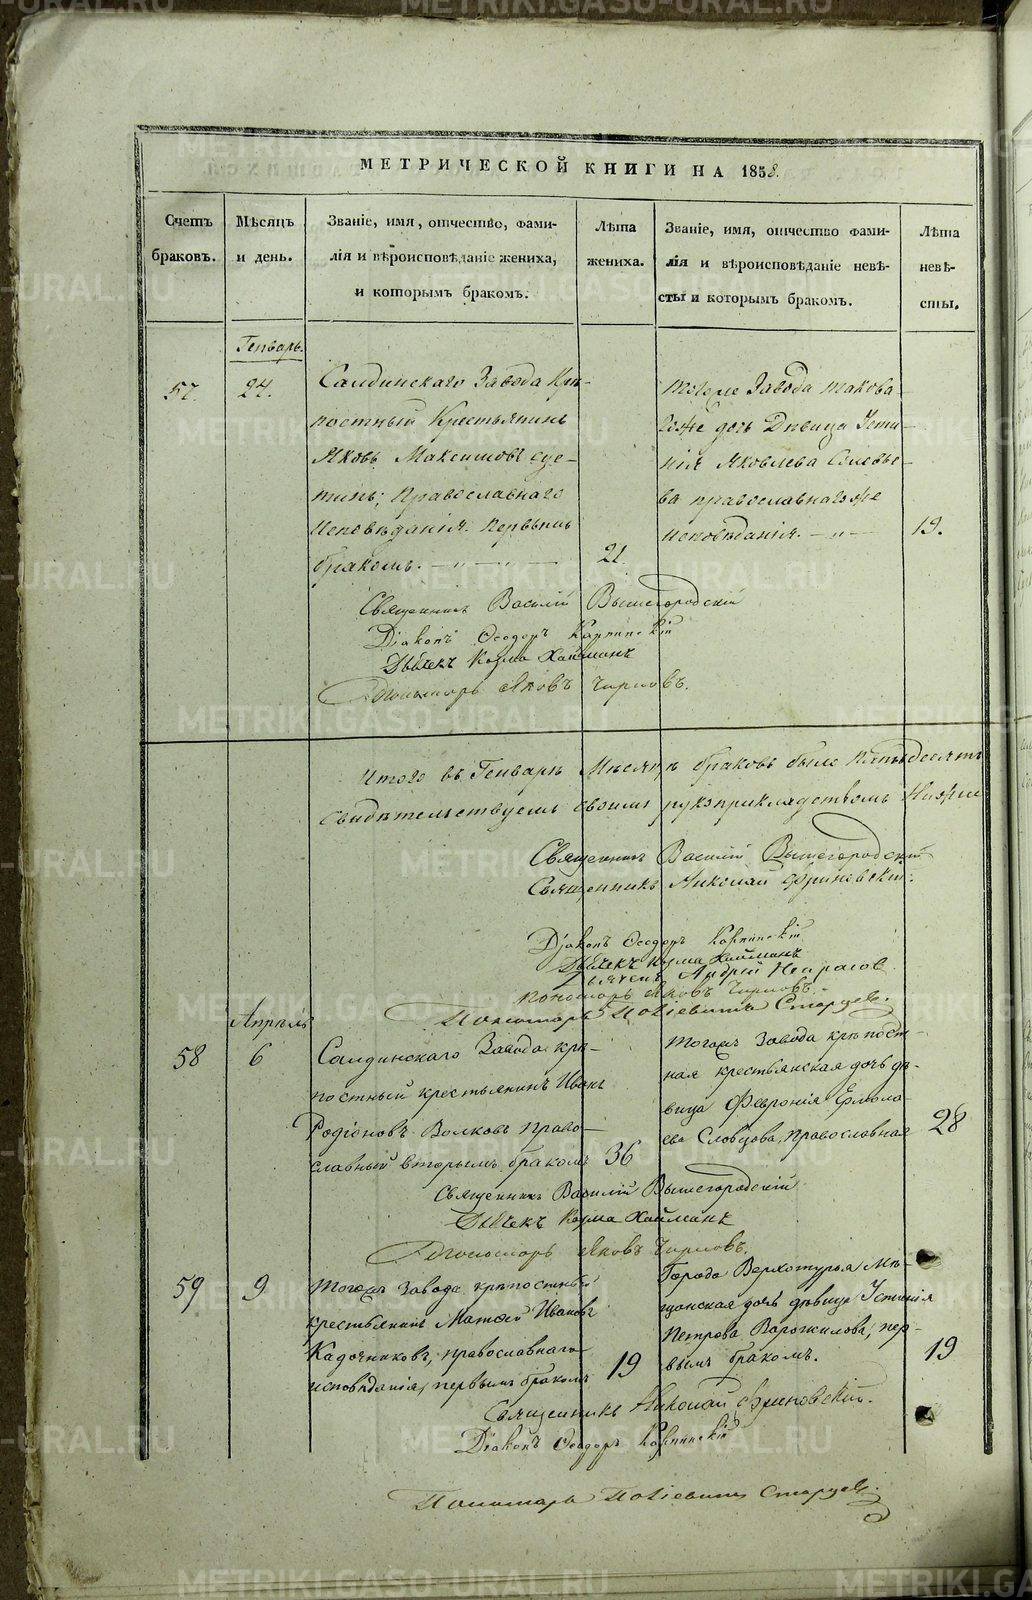 МЕТРИЧЕСКОЙ КНИГИ НА 1858.
Счетъ браковъ.
Мѣсяцъ и день.
Званіе, имя, отчество, фами-
лія и вѣроисповѣданіе жениха,
и которымъ бракомъ.
Лѣта
жениха.
Званіе, имя, отчество фами-
лія и вѣроисповѣданіе невѣ-
сты и которымъ бракомъ.
Лѣта
невѣ-
сты.
Генварь.
57.
24.
Салдинскаго Завода Крѣ-
постный Крестьянинъ
Яковъ Максимовъ
Православнаго
Исповѣданія. Первымъ
бракомъ.
21.
Тогоже Завода такова-
гоже дочь Дѣвица Усти-
нія Яковлева Соловье-
ва православнагоже
исповѣданія.
19.
Священникъ Василій Вышегородскій
Діаконъ Ѳеодоръ Карпинскій
Дьячекъ Козма Хайминъ
Пономарь Яковъ Чирковъ.
Итого въ Генварѣ Мѣсяцѣ браковъ было пятьдесятъ
свидѣтельствуемъ своимъ рукоприкладствомъ
Священникъ Василій Вышегородскій
Священникъ Николай
Діаконъ Ѳеодоръ Карпинскій
Дьячекъ Козма Хайминъ
Дьячекъ Андрей Некрасов
Пономарь Яковъ Чирковъ.
Пономарь Старцевъ.
Апрѣль
58
6
Салдинскаго Завода крѣ-
постный крестьянинъ Иванъ
Родіоновъ Волковъ право-
славный вторымъ бракомъ
36
Тогожъ Завода крѣпост-
ная крестьянская дочь дѣ-
вица Февронія Ермола-
ева Словцова, православная
28
Священникъ Василій Вышегородскій
Дьячекъ Козма Хайминъ
Пономарь Яковъ Чирковъ.
59
9
Тогожъ Завода крѣпостный
крестьянинъ Матѳей Ивановъ
Кадочниковъ, православнаго
исповѣданія, первымъ бракомъ
19
Города Верхотурья Мѣ-
щанская дочь дѣвица Устинія
Петрова Ворожилова, пер-
вымъ бракомъ.
19
Священникъ Николай
Діаконъ Ѳеодоръ Карпинскій
Пономарь Старцевъ.
METRIKI.GASO-URAL.RU